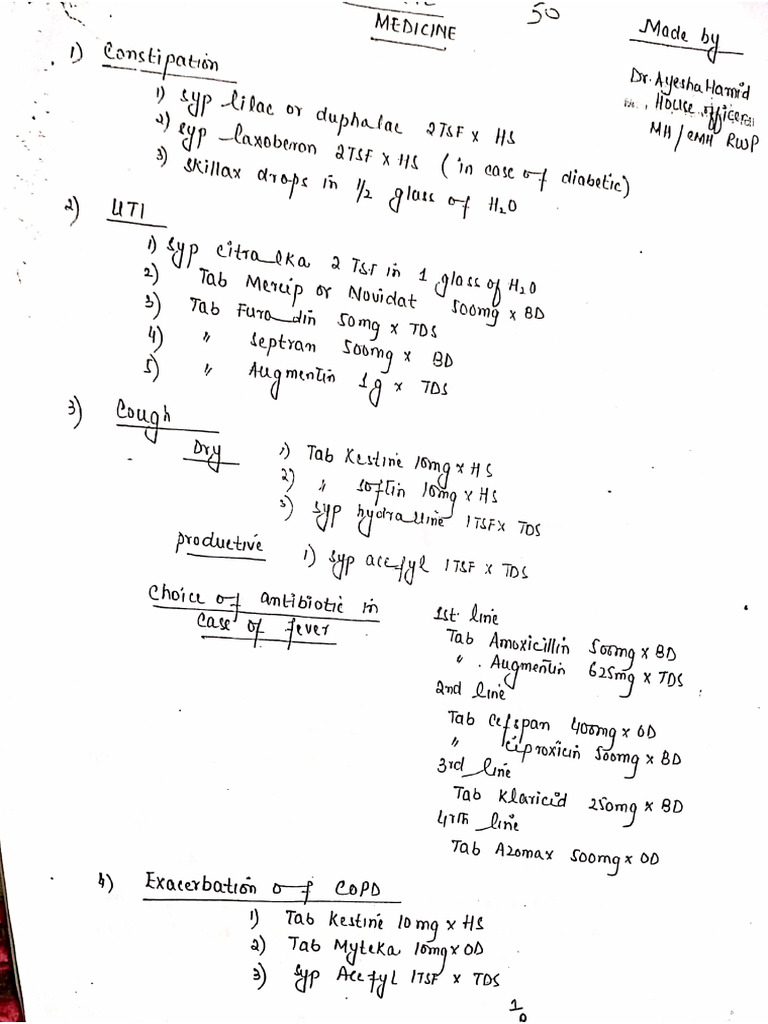 MEDICINE
50
Made by
Dr. Ayesha Hamid
House officer
MH/CMH RWP
1) Constipation
1) Syp lilac or duphalac 2TSF x HS
2) Syp laxoberon 2TSF x HS (in case of diabetic)
3) Skillax drops in 1/2 glass of H2O
2) UTI
1) Syp citralka 2 TSF in 1 glass of H2O
2) Tab Mercip or Novidat 500mg x BD
3) Tab Furadin 50mg x TDS
4) " Septran 500mg x BD
5) " Augmentin 1g x TDS
3) Cough
Dry
1) Tab Kestine 10mg x HS
2) " softin 10mg x HS
3) Syp hydralline 1TSF x TDS
productive
1) Syp acefyl 1TSF x TDS
Choice of antibiotic in
case of fever
1st line
Tab Amoxicillin 500mg x BD
" Augmentin 625mg x TDS
2nd line
Tab Cefspan 400mg x OD
" Ciproxicin 500mg x BD
3rd line
Tab Klaricid 250mg x BD
4rth line
Tab Azomax 500mg x OD
4) Exacerbation of COPD
1) Tab Kestine 10mg x HS
2) Tab Myteka 10mg x OD
3) Syp Acefyl 1TSF x TDS